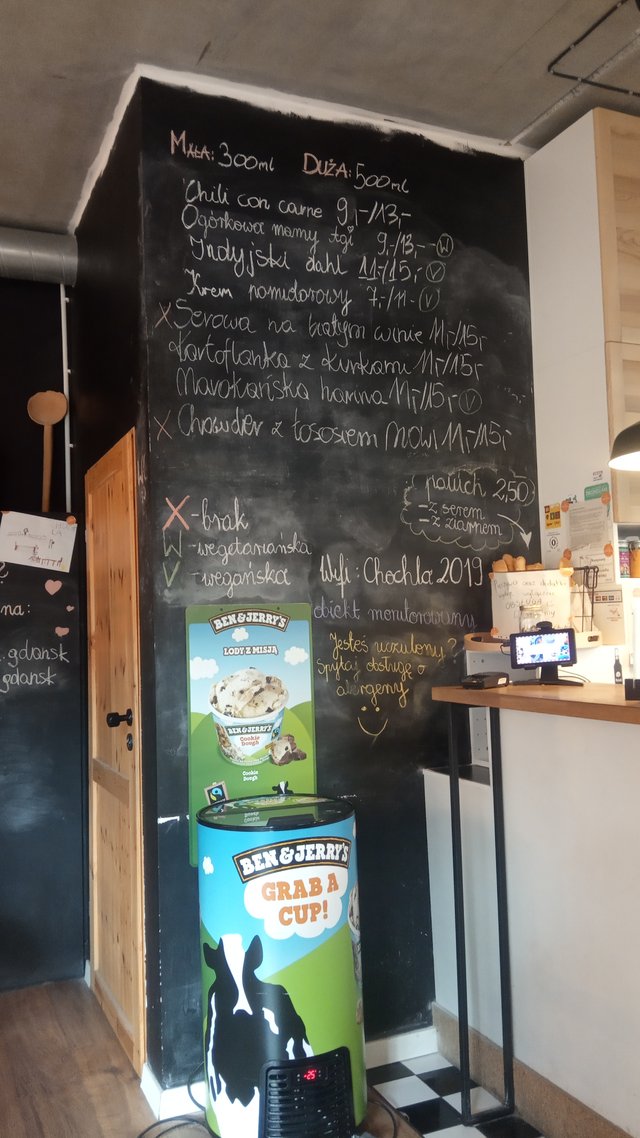 Mała: 300ml Duża: 500ml
Chili con carne 9,-/13,-
Ogórkowa mamy Igi 9,-/13,- W
Indyjski dahl 11,-/15,- V
Krem pomidorowy 7,-/11,- V
X Serowa na białym winie 11,-/15,-
Kartoflanka z kurkami 11,-/15,-
Marokańska harira 11,-/15,- V
X Chowder z łososiem MOWI 11,-/15,-
paluch 2,50
-z serem
-z ziarnem
X - brak
W - wegetariańska
V - wegańska
Wifi: Chochla2019
obiekt monitorowany
Jesteś uczulony?
Spytaj obsługę o
alergeny
na:
gdansk
gdansk
BEN & JERRY'S
LODY Z MISJĄ
BEN & JERRY'S
Cookie
Dough
Cookie
Dough
BEN & JERRY'S
GRAB A
CUP!
-25